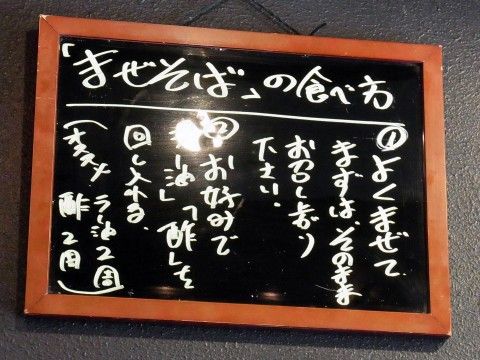 「まぜそば」の食べ方
①よくまぜて
まずは、そのまま
お召し上がり
下さい。
②お好みで
「ラー油」「酢」を
回し入れる。
(オススメ ラー油2周
酢2周)